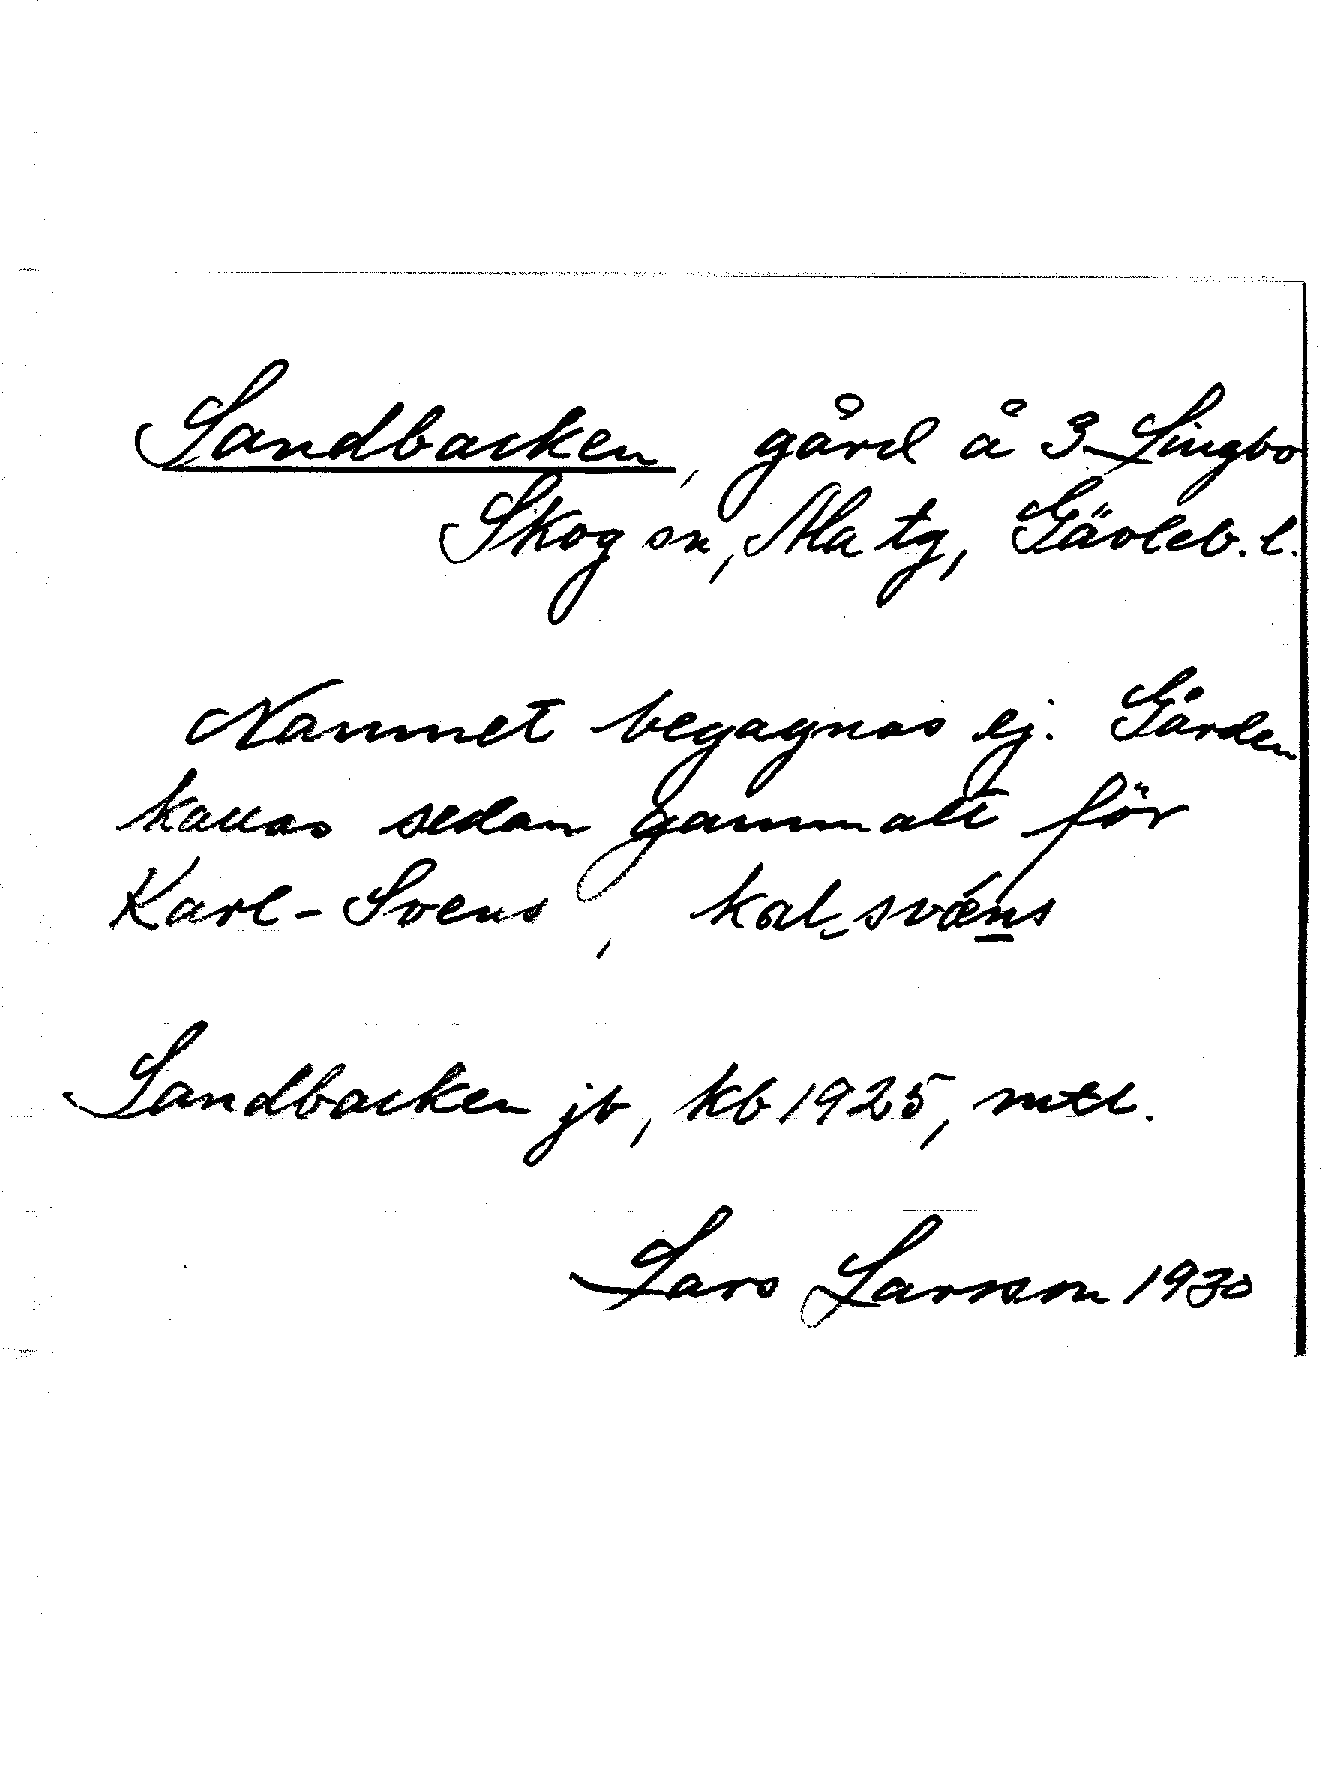 Sandbacken, gård å 3 Lingbo
Skog sn, Ala tg, Gävleb. l.
Namnet begagnas ej. Gården
kallas sedan gammalt för
Karl-Svens, kal-svǽns
Sandbacken jb, kb 1925, mtl.
Lars Larsson 1930